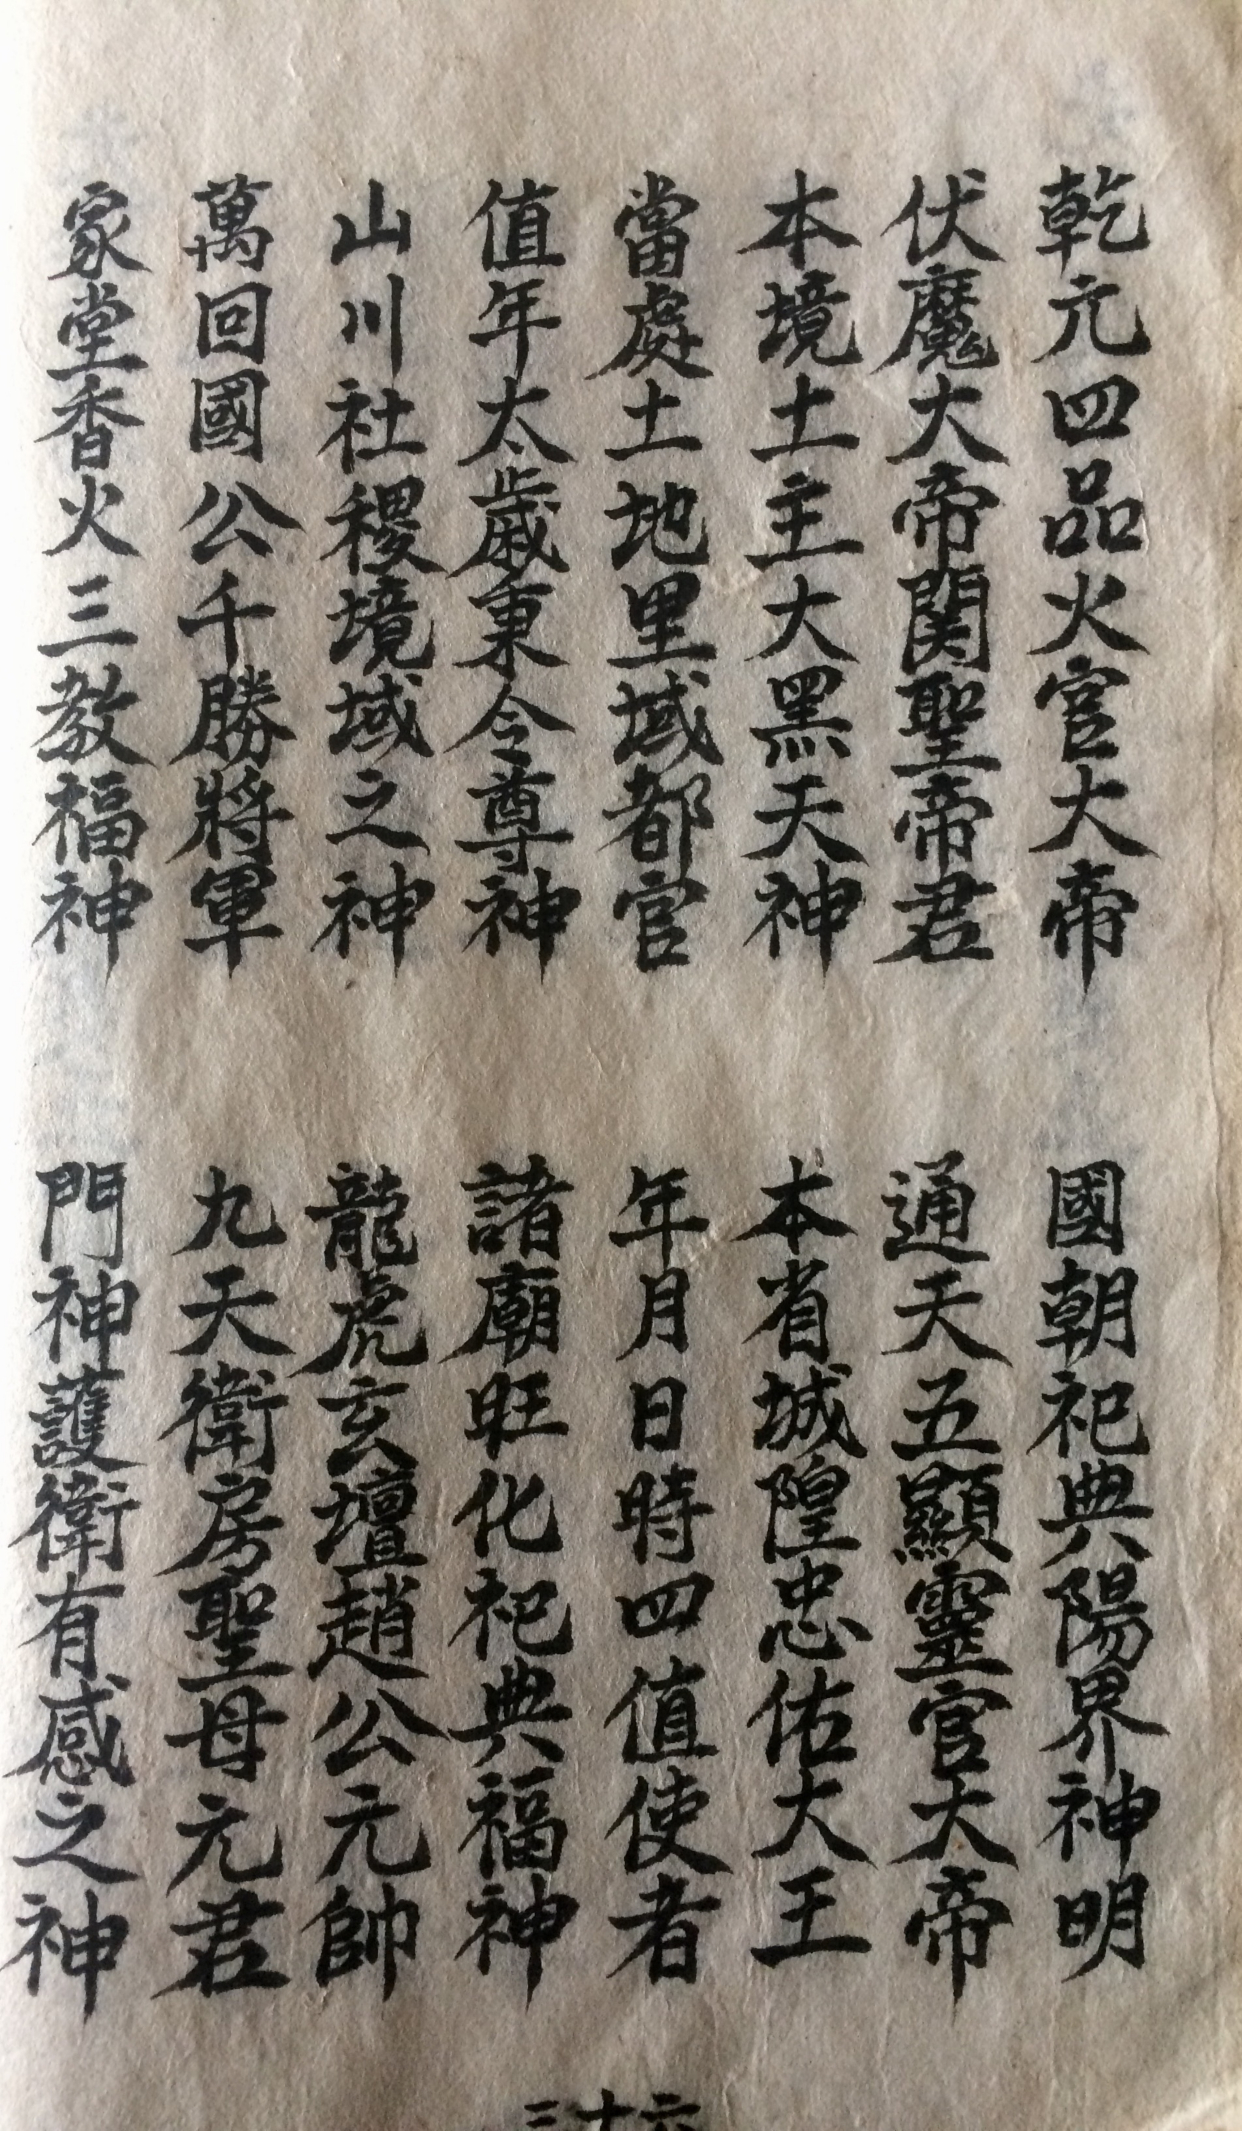 乾元四品火官大帝
國朝祀典陽界神明
伏魔大帝関聖帝君
通天五顯靈官大帝
本境土主大黑天神
本省城隍忠佑大王
當處土地里域都官
年月日時四值使者
值年太歲秉令尊神
諸廟旺化祀典福神
山川社稷境域之神
龍虎玄壇趙公元帥
萬回國公千勝將軍
九天衛房聖母元君
家堂香火三教福神
門神護衛有感之神
三十六